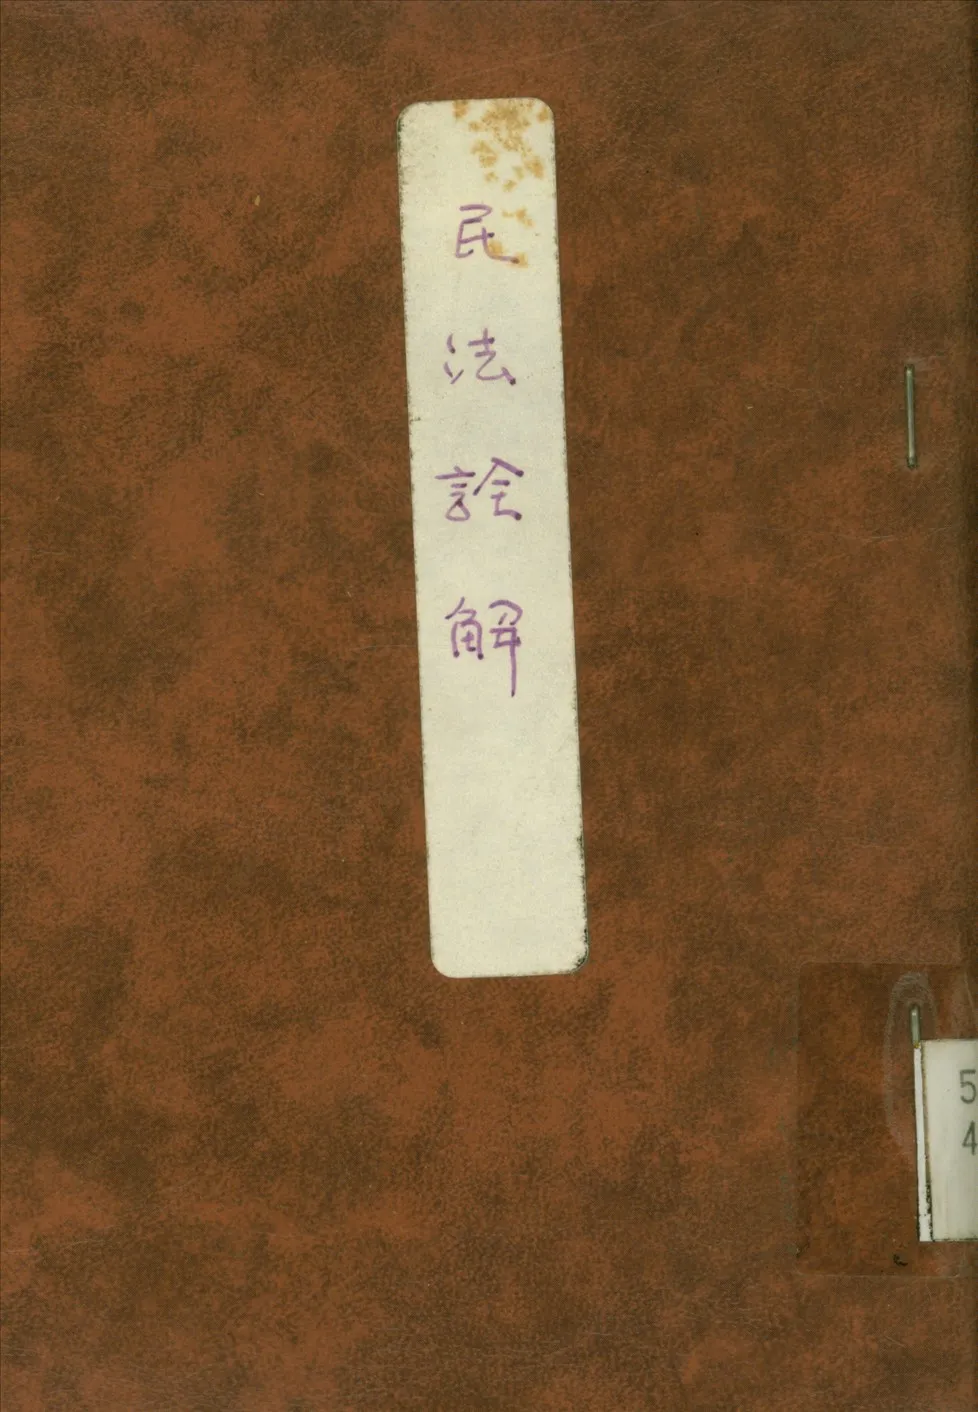 民法詮解
5
4